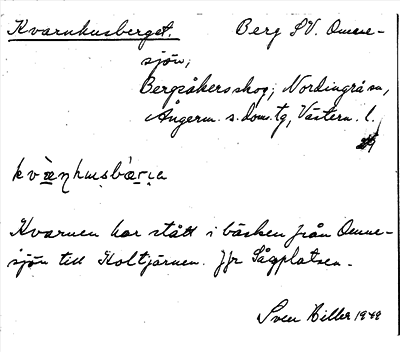 Kvarnhusberget. Berg SV. Omne-
sjön,
Bergsåkers skog; Nordingrå sn,
Ångerm. s. doms.tg, Västern. l.
Kvarnen har stått i bäcken från Omne-
sjön till Holtjärnen. Jfr Sågplatsen.
Sven Hiller 1948